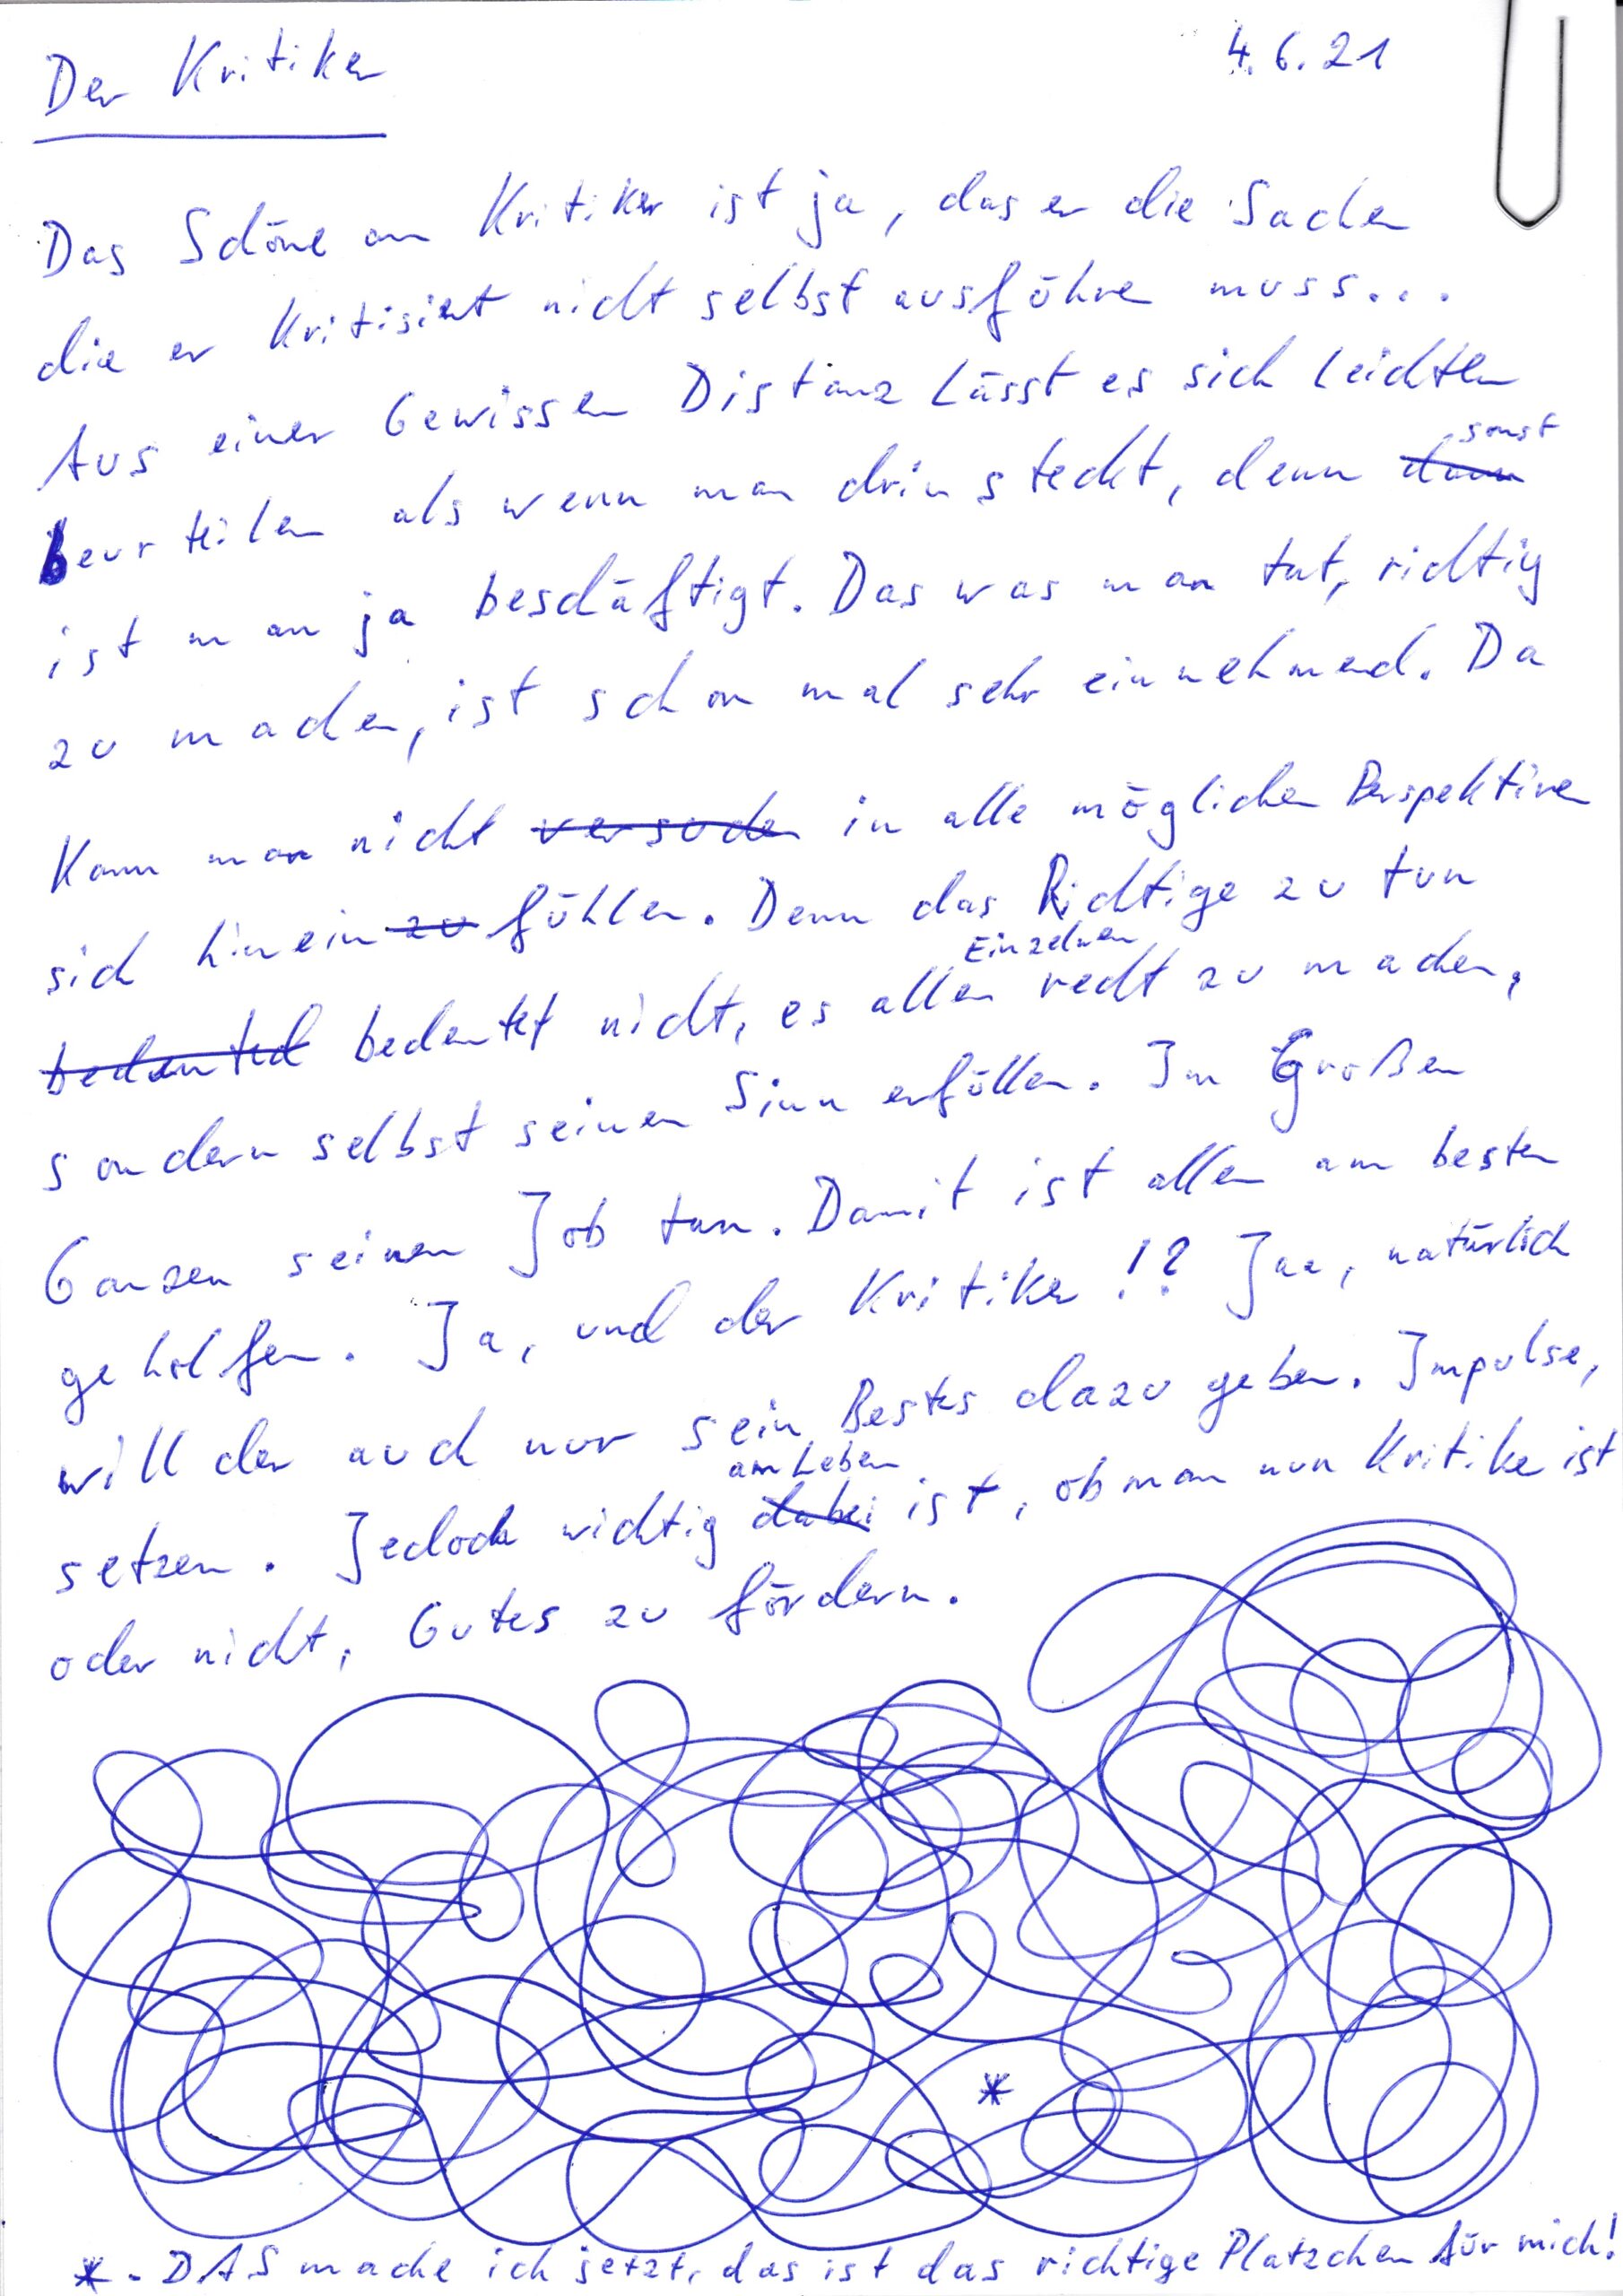 Der Kritiker
4.6.21
Das Schöne am Kritiker ist ja, das er die Sachen
die er kritisiert nicht selbst ausführen muss...
Aus einer Gewissen Distanz lässt es sich leichter
beurteilen als wenn man drin steckt, denn ~~dann~~ sonst
ist man ja beschäftigt. Das was man tut, richtig
zu machen, ist schon mal sehr einnehmend. Da
Kann man nicht ~~versuchen~~ in alle möglichen Perspektiven
sich hinein ~~zu~~ fühlen. Denn das Richtige zu tun
~~bedeuted~~ bedeutet nicht, es allen Einzelnen recht zu machen,
sondern selbst seinen Sinn erfüllen. Im Großen
Ganzen seinen Job tun. Damit ist allen am besten
geholfen. Ja, und der Kritiker!? Jaa, natürlich
will der auch nur sein Bestes dazu geben. Impulse,
setzen. Jedoch wichtig ~~dabei~~ am Leben ist, ob man nun Kritiker ist
oder nicht, Gutes zu fördern.
*
* - DAS mache ich jetzt, das ist das richtige Plätzchen für mich!